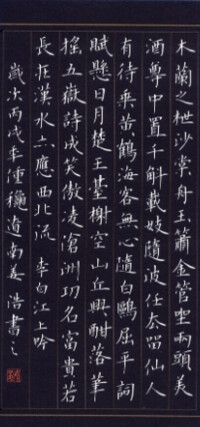 木蘭之枻沙棠舟玉簫金管坐兩頭美
酒尊中置千斛載妓隨波任去留仙人
有待乘黃鶴海客無心隨白鷗屈平詞
賦懸日月楚王臺榭空山丘興酣落筆
搖五嶽詩成笑傲凌滄洲功名富貴若
長在漢水亦應西北流 李白江上吟
歲次丙戌年仲穐道南姜浩書之